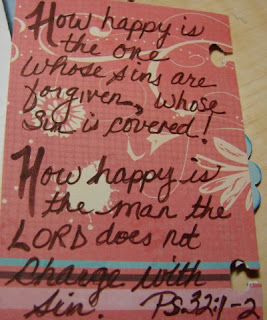 How happy is
the one
whose sins are
forgiven, whose
sin is covered!
How happy is
the man the
LORD does not
charge with
sin. Ps. 32:1-2